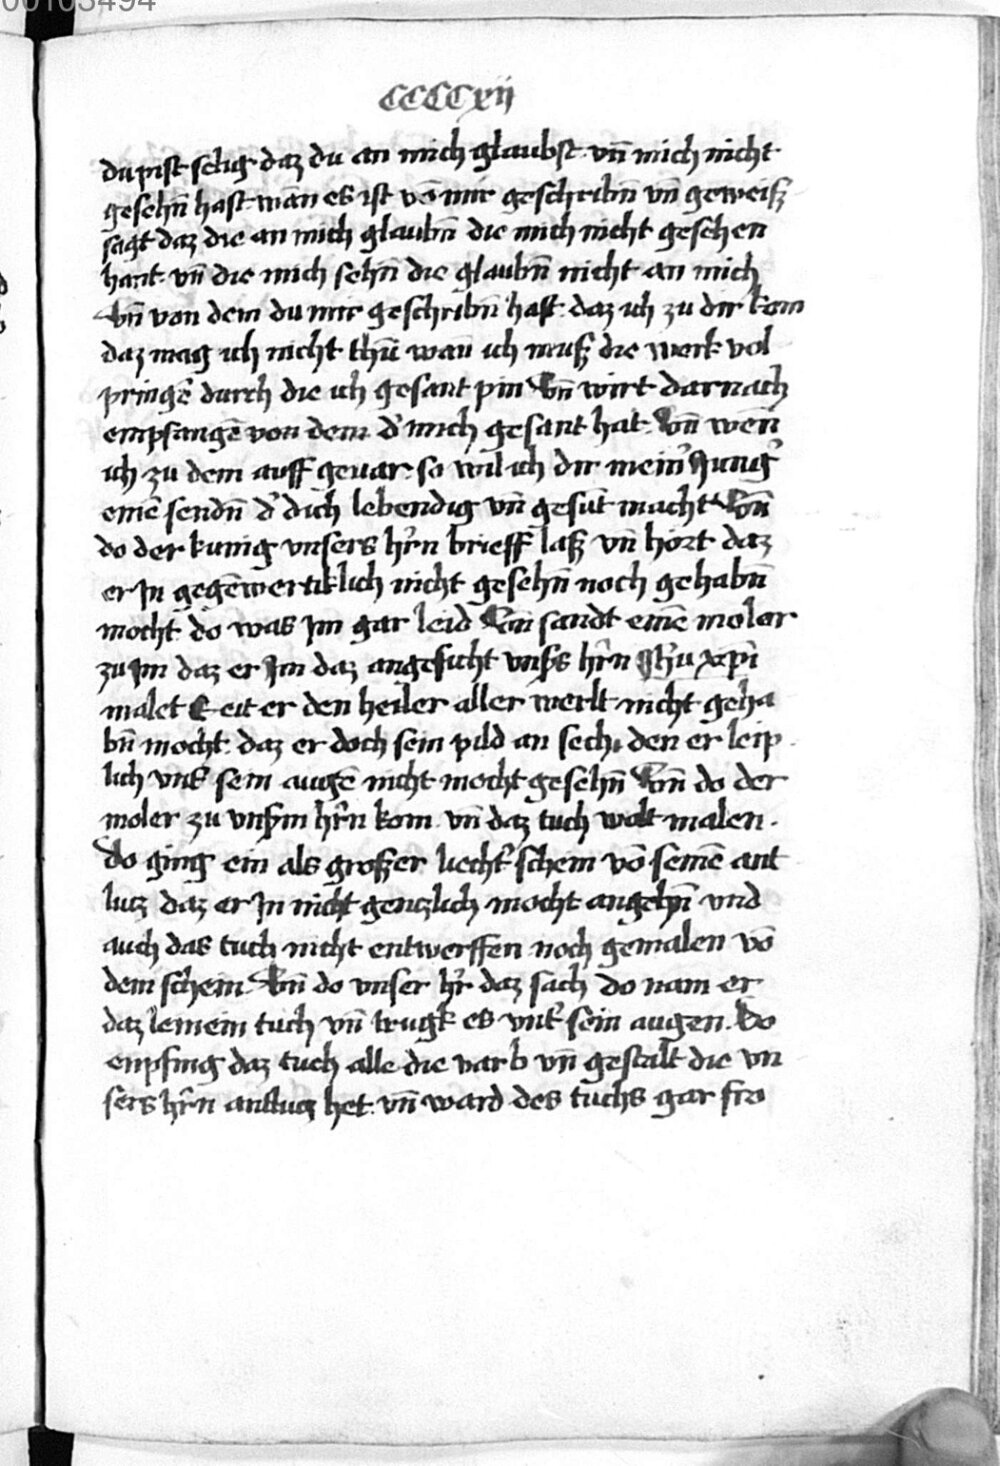 00103494
CCCCxij
du pist selig daz du an mich glaubst vn̄ mich nicht
gesehn̄ hast wan es ist võ mir geschribn̄ vn̄ geweiß
sagt daz die an mich glaubn̄ die mich nicht gesehen
hant vn̄ die mich sehn̄ die glaubn̄ nicht an mich
Vn̄ von dem du mir geschribn̄ hast daz ich zu dir kom
daz mag ich nicht thū wan̄ ich muß die werk vol
pringē durch die ich gesant pin Vn̄ wirt darnach
empfangē von dem d' mich gesant hat Vn̄ wen̄
ich zu dem auff gevar so wil ich dir mein' Jung'
einē sendn̄ d' dich lebendig vn̄ gesūt macht Vn̄
do der kunig vnsers hr̄n brieff laß vn̄ hort daz
er Jn gegēwertiklich nicht gesehn̄ noch gehabn̄
mocht do was Jm gar leid Vn̄ sandt einē moler
zu Jm daz er Jm daz angesicht vnsꝰs hr̄n Jh'u xp̄i
malet Seit er den heiler aller werlt nicht geha
bn̄ mocht daz er doch sein pild an sech, den er leip
lich vnt' sein augē nicht mocht gesehn̄ Vn̄ do der
moler zu vnsꝰm hr̄n kom vn̄ daz tuch wolt malen.
do ging ein als großer liecht' schein võ seinē ant
lutz daz er Jn nicht genczlich mocht angesehn̄ vnd
auch das tuch nicht entwerffen noch gemalen võ
dem schein Vn̄ do vnser hr̄ daz sach do nam er
daz leinein tuch vn̄ trugk es vnt' sein augen. Do
enpfing daz tuch alle die varb vn̄ gestalt die vn
sers hr̄n antlucz het vn̄ ward des tuchs gar fro